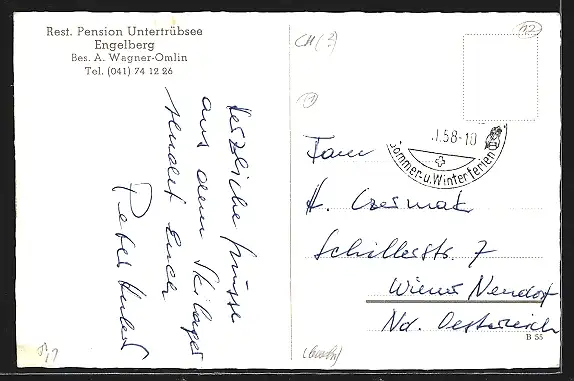 Rest. Pension Untertrübsee
Engelberg
Bes. A. Wagner-Omlin
Tel. (041) 74 12 26
Herzliche Grüsse
aus dem Skilager
sendet Euch
Peter Huber
CH (?)
12
.I.58-10
Sommer-u.Winterferien
Fam
H. Czermak
Schillerstr. 7
Wiener Neudorf
Nd. Oesterreich
B 55